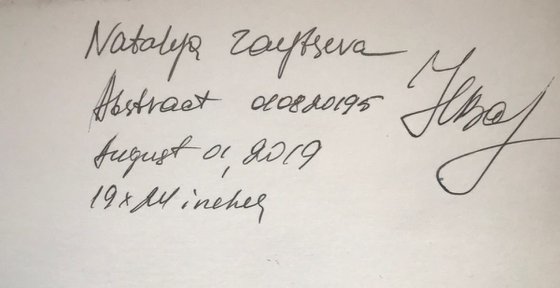 Natalya Zaytseva
Abstract 010820195
August 01, 2019
19x24 inches